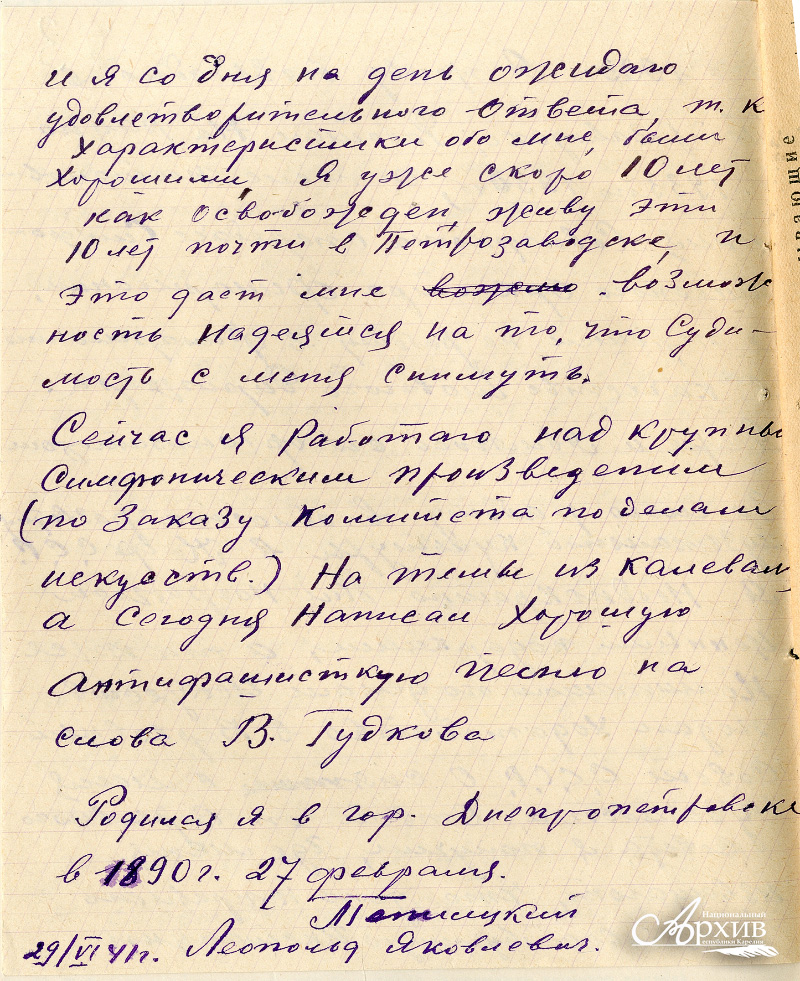 и я со дня на день ожидаю
удовлетворительного ответа, т. к
характеристики обо мне, были
хорошими. Я уже скоро 10 лет
как освобожден, живу эти
10 лет почти в Петрозаводске, и
это даст мне возмож
ность надеятся на то, что Суди-
мость с меня снимуть.
Сейчас я работаю над крупны
Симфоническим произведением
(по заказу комитета по делам
искусств.) На темы из Калевал
а сегодня написал хорошую
Антифашисткую песню на
слова В. Гудкова
Родился я в гор. Днепропетровске
в 1890 г. 27 февраля.
29/VI 41 г. Леопольд Яковлевич.
вающие
Национальный
Архив
Республики Карелия